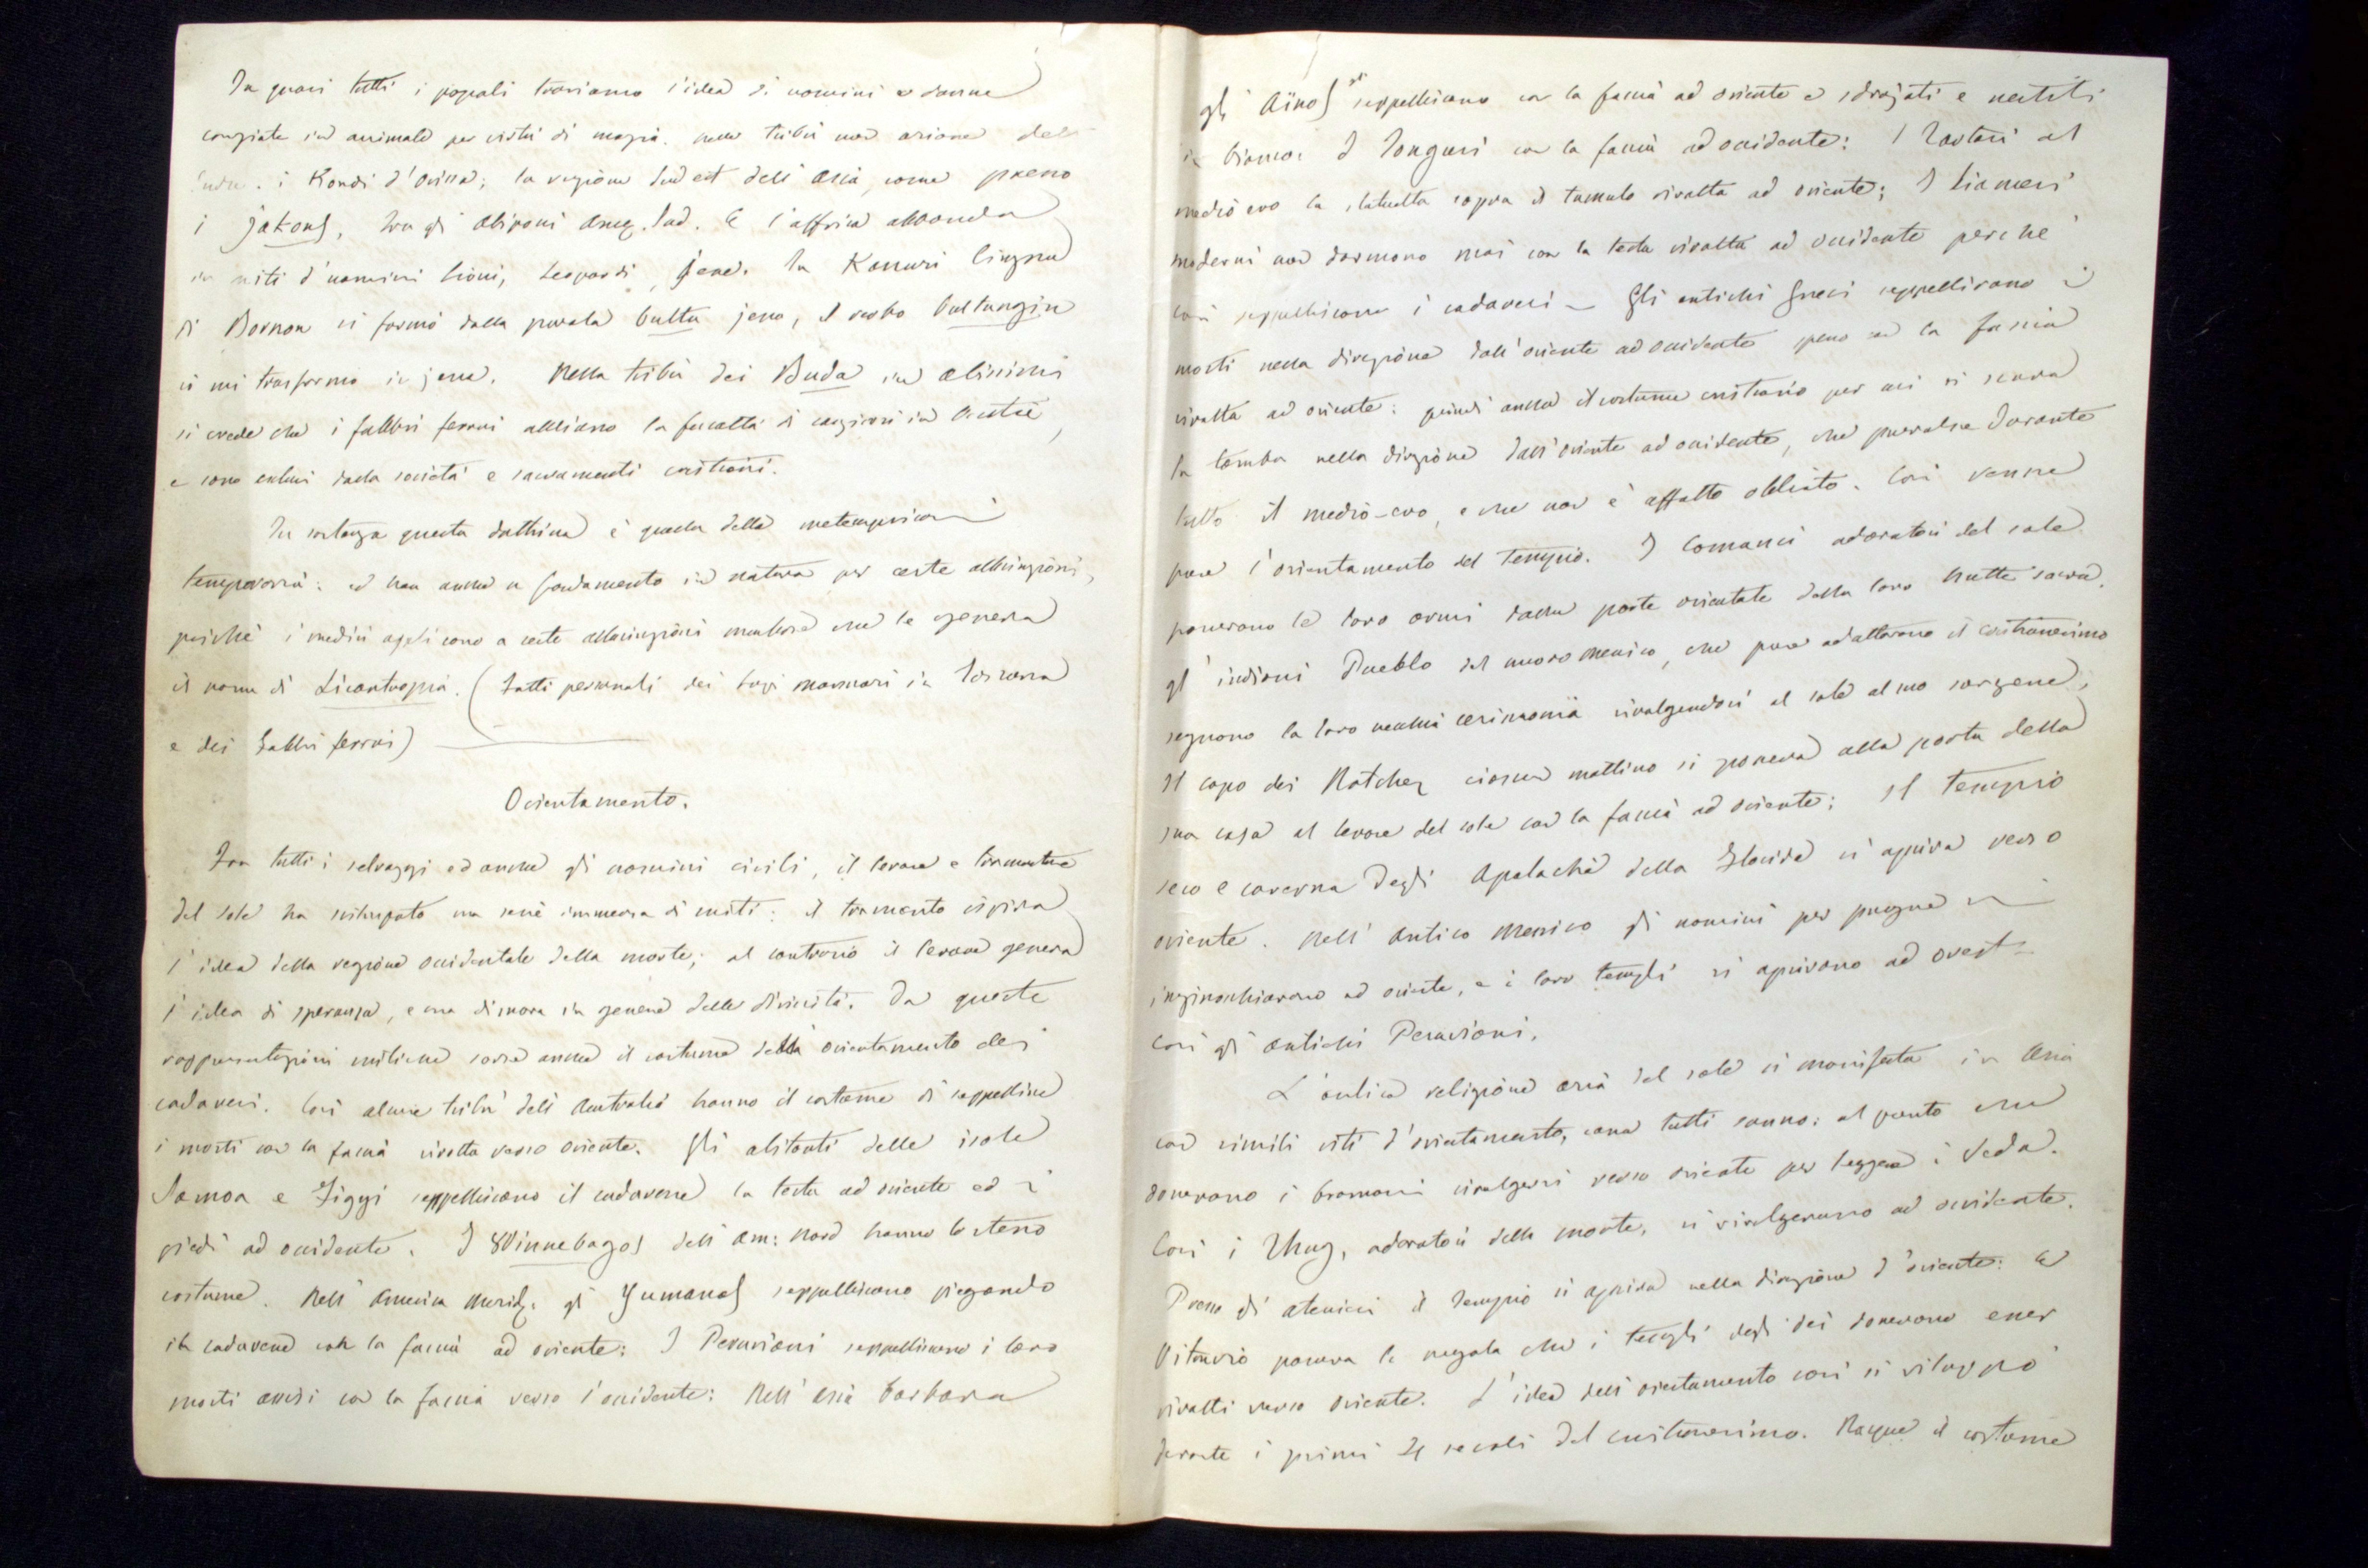 In quasi tutti i popoli troviamo l'idea di uomini e donne
cangiate in animale per virtù di magia. nelle tribù non ariane del
i Kondi d'Orissa; la regione sud est dell'Asia, come presso
i jakons, tra gli Abiponi Amer. Sud. E l'affrica abbonda
in miti d'uomini lioni, leopardi, jene. In Kanuri lingua
di Bornou si formò dalla parola bultu jena, il verbo bultungin
io mi trasformo in jena. Nella tribù dei Buda in Abissinia
si crede che i fabbri ferrai abbiano la facoltà di cangiarsi in bestie,
e sono esclusi dalla società e sacramenti cristiani.
In sostanza questa dottrina è quella della metempsicosi
temporaria: ed han anche un fondamento in natura per certe allucinazioni,
poiché i medici applicano a certe allucinazioni morbose che le genera
il nome di Licantropia. (Fatti personali dei lupi mannari in Toscana
e dei fabbri ferrai)
Orientamento.
Fra tutti i selvaggi ed anche gli uomini civili, il levare e tramontare
del sole ha sviluppato una serie immensa di miti: il tramonto ispira
l'idea della regione occidentale della morte; al contrario il levare genera
l'idea di speranza, e una dimora in genere delle divinità. Da queste
rappresentazioni mitiche sorse anche il costume della orientamento dei
cadaveri. Così alcune tribù dell'Australia hanno il costume di seppellire
i morti con la faccia rivolta verso oriente. Gli abitanti delle isole
Samoa e Figgi seppelliscono il cadavere la testa ad oriente ed i
piedi ad occidente. I Winnebagos dell'Am: Nord hanno lo steso
costume. Nell'America Merid. gli Yumanas seppelliscono piegando
il cadavere con la faccia ad oriente: I Peruviani seppellivano i loro
morti assisi con la faccia verso l'occidente: Nell'Asia barbara
gli Aïnos seppelliscono con la faccia ad oriente e sdrajati e vestiti
in bianco: I Tonguri con la faccia ad occidente: I Tartari al
medio evo la statuetta sopra il tumulo rivolta ad oriente; I Siamesi
moderni non dormono mai con la testa rivolta ad occidente perché
così seppelliscono i cadaveri — Gli antichi Greci seppellivano i
morti nella direzione dall'oriente ad occidente, però con la faccia
rivolta ad oriente: quindi anche il costume cristiano per cui si scava
la tomba nella direzione dall'oriente ad occidente, che prevalse durante
tutto il medio-evo, e che non è affatto obliato. Così venne
pure l'orientamento del tempio. I Comanci adoratori del sole
ponevano le loro armi dalla parte orientale della loro hutte sacra.
gl'indiani Pueblo del nuovo messico, che pure adottarono il cristianesimo
seguono la loro vecchia cerimonia rivolgendosi al sole al suo sorgere.
Il capo dei Natchez ciascun mattino si poneva alla porta della
sua casa al levare del sole con la faccia ad oriente; il tempio
seco e caverna degli Apalachè della Florida si apriva verso
oriente. Nell'Antico Messico gli uomini per pregare si
inginocchiavano ad oriente, e i loro templi si aprivano ad ovest –
così gli antichi Peruviani.
L'antica religione aria del sole si manifesta in Asia
con simili riti d'orientamento, come tutti sanno: al punto che
dovevano i bramani rivolgersi verso oriente per leggere i Veda.
Così i Thug, adoratori della morte, si rivolgevano ad occidente.
Presso gli ateniesi il tempio si apriva nella direzione d'oriente: e
Vitruvio poneva la regola che i templi degli dei dovevano esser
rivolti verso oriente. L'idea dell'orientamento così si sviluppò
durante i primi 4 secoli del cristianesimo. Nacque il costume